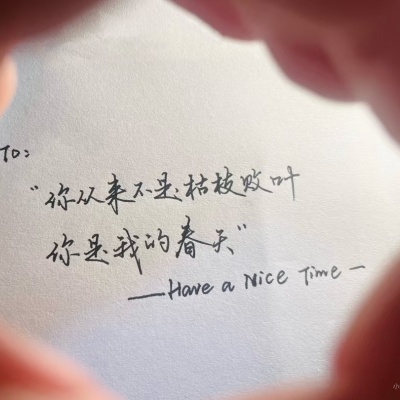 TO:
“你从来不是枯枝败叶
你是我的春天”
——Have a Nice Time—
小